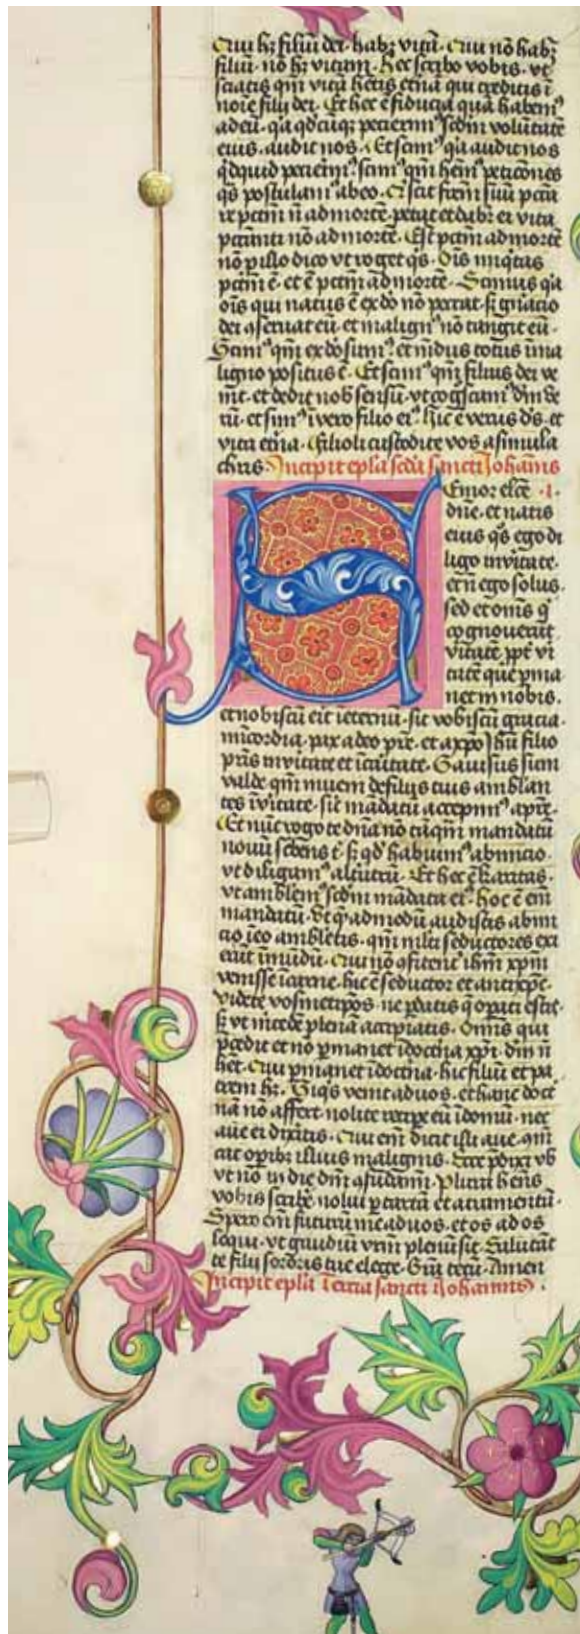 Qui hꝫ filiū dei· habꝫ vitā· Qui nō habꝫ
filiū· nō hꝫ vitam· Hec scribo vobis· vt
sciatis qm̄ vitā hētis etnā qui creditis ī
noīe filij dei· Et hec ē fiducia quā habemꝰ
ad eū· qꝛ qdcūqꝫ petierimꝰ scdm volūtatē
eius· audit nos· Et scimꝰ qꝛ audit nos
qdquid petierimꝰ· scimꝰ qm̄ hēmꝰ peticōnes
qs̄ postulamꝰ ab eo· Qi scit frēm suū pcca
re pctm̄ nō ad mortē· petat et dabꝫ ei vita
pccanti nō ad mortē· Est pctm̄ ad mortē
nō ꝓ illo dico vt roget qs· Oīs iniqͥtas
pctm̄ ē· et ē pctm̄ ad mortē· Scimus qꝛ
oīs qui natus ē ex do nō peccat· sꝫ gn̄acio
dei ꝯseruat eū· et malignꝰ nō tangit eū·
Scimꝰ qm̄ ex do sumꝰ· et mūdus totus ī ma
ligno positus ē· Et scimꝰ qm̄ filius dei ve
nit· et dedit nob̄ sensū· vt cogscam̄ dm̄ ve
rū· et simꝰ ī vero filio eiꝰ· Hic ē verus ds̄· et
vita etn̄a· Filioli custodite vos a simula
chris· Incipit epl̄a scd̄a sancti Johannis
Senior elcē ·1·
dn̄e· et natis
eius qs̄ ego di
ligo in vitate·
et nō ego solus·
sed et om̄s qͥ
cognouerūt
vitatē· ꝓpt̄ vi
tatē que ꝑma
net in nobis·
et nobiscū eit ī eternū· sit vobiscū gracia·
mīcordia· pax a deo pr̄e· et a xp̄o Jhū filio
pr̄is in vitate et ī caritate· Gauisus sum
valde qm̄ inueni de filijs tuis ambl̄an
tes ī vitate· sic̄ mādatū accepimꝰ a pr̄e·
Et nūc rogo te dn̄a nō tāqm̄ mandatū
nouū scbens t̄· sꝫ qd̄ habuimꝰ ab inicio·
vt diligamꝰ altutrū· Et hec ē karitas·
vt amblemꝰ scdm mādata eiꝰ· Hoc ē em̄
mandatū· vt qͤadmodū audistis ab ini
cio ī eo ambletis· qm̄ mlti seductores exi
erūt ī mūdū· Qui nō ꝯfitent̄ ihm xpm
venisse ī carne· hic ē seductor et antixp̄c·
Videte vosmetipos· ne ꝑdatis q̄ opati estis·
sꝫ vt mcede plenā accipiatis· Omis qui
p̄cedit et nō ꝑmanet ī doctna xpi· dm̄ nō
hēt· Qui ꝑmanet ī doctna· hic filiū et pa
trem hꝫ· Siqͥs venit ad uos· et hanc doct
nā nō affert· nolite recipe eū ī domū· nec
aue ei dixitis· Qui em̄ dicit illi aue· cm̄
cat opibꝫ illius malignis· Ecce p̄dixi vob̄
vt nō in die dm̄ ꝯfudam̄· Plura hens
vobis scribe· nolui ꝑ cartā et atramentū·
Spero em̄ futurū me ad uos· et os ad os
loqui· vt gaudiū vrm̄ plenū sit· Salutāt
te filij sororis tue electe· Gra tecū· Amen
Incipit epl̄a Tercia sancti Johannis·